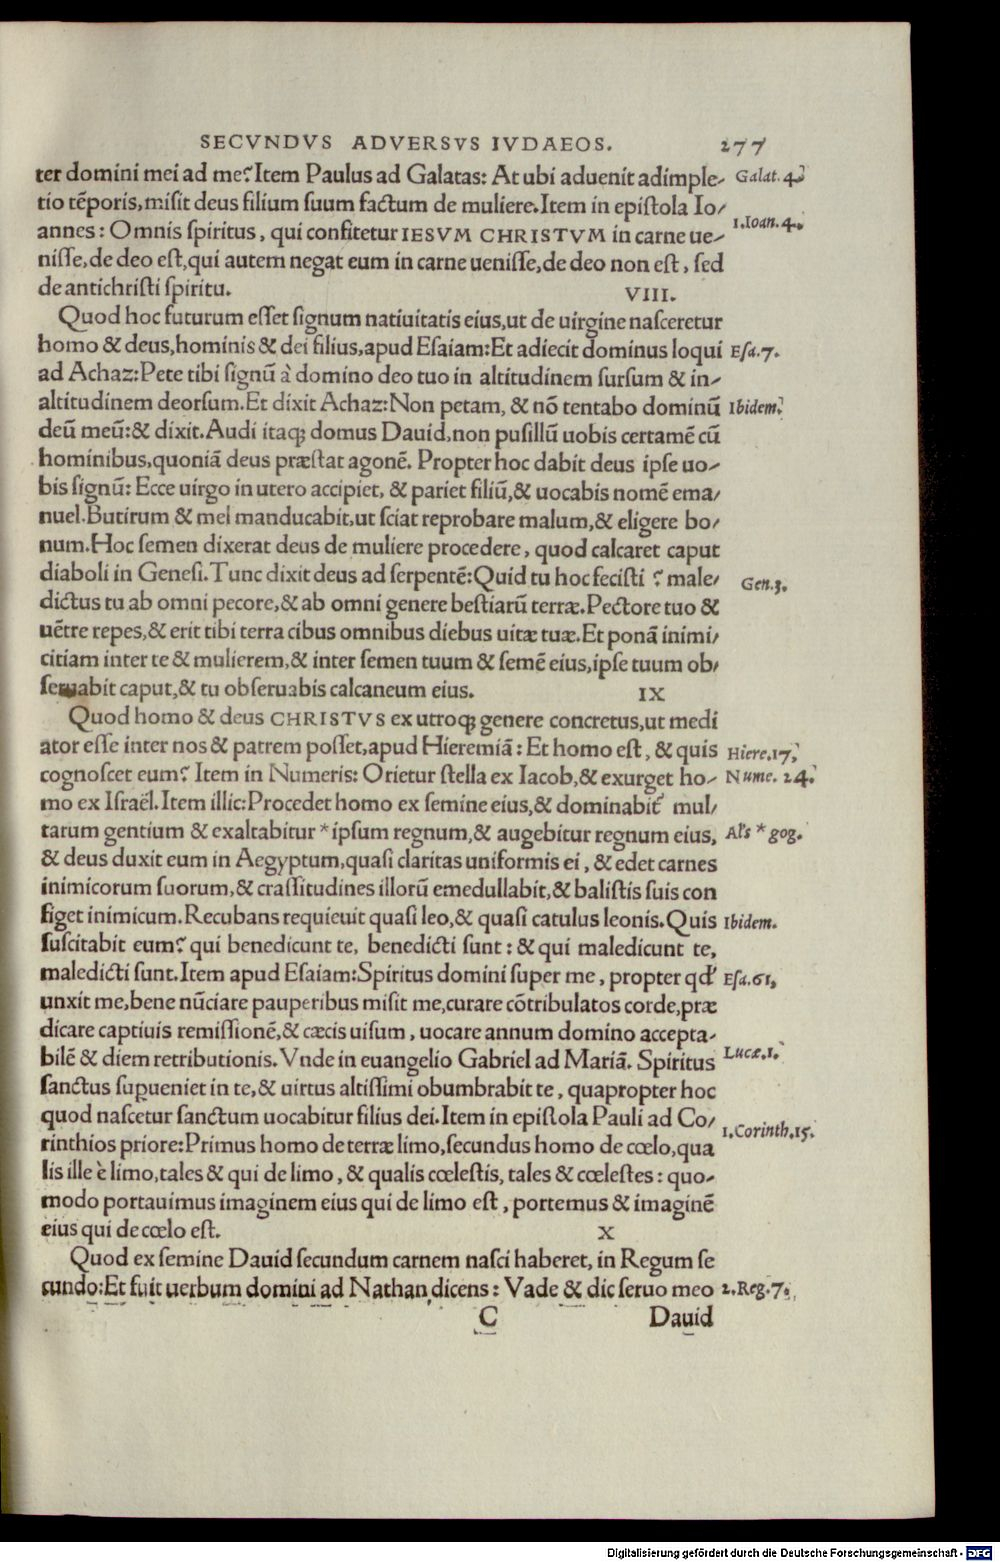 SECVNDVS ADVERSVS IVDAEOS. 277
ter domini mei ad me? Item Paulus ad Galatas: At ubi aduenit adimple- Galat. 4.
tio tẽporis, misit deus filium suum factum de muliere. Item in epistola Io/
annes: Omnis spiritus, qui confitetur IESVM CHRISTVM in carne ue- 1. Ioan. 4.
nisse, de deo est, qui autem negat eum in carne uenisse, de deo non est, sed
de antichristi spiritu. VIII.
Quod hoc futurum esset signum natiuitatis eius, ut de uirgine nasceretur
homo & deus, hominis & dei filius, apud Esaiam: Et adiecit dominus loqui Esa. 7.
ad Achaz: Pete tibi signũ à domino deo tuo in altitudinem sursum & in-
altitudinem deorsum. Et dixit Achaz: Non petam, & nõ tentabo dominũ Ibidem.
deũ meũ: & dixit. Audi itaq; domus Dauid, non pusillũ uobis certamẽ cũ
hominibus, quoniã deus præstat agonẽ. Propter hoc dabit deus ipse uo-
bis signũ: Ecce uirgo in utero accipiet, & pariet filiũ, & uocabis nomẽ ema/
nuel. Butirum & mel manducabit, ut sciat reprobare malum, & eligere bo/
num. Hoc semen dixerat deus de muliere procedere, quod calcaret caput
diaboli in Genesi. Tunc dixit deus ad serpentẽ: Quid tu hoc fecisti? male/ Gen. 3.
dictus tu ab omni pecore, & ab omni genere bestiarũ terræ. Pectore tuo &
uẽtre repes, & erit tibi terra cibus omnibus diebus uitæ tuæ. Et ponã inimi/
citiam inter te & mulierem, & inter semen tuum & semẽ eius, ipse tuum ob/
seruabit caput, & tu obseruabis calcaneum eius. IX
Quod homo & deus CHRISTVS ex utroq; genere concretus, ut medi
ator esse inter nos & patrem posset, apud Hieremiã: Et homo est, & quis Hiere. 17.
cognoscet eum? Item in Numeris: Orietur stella ex Iacob, & exurget ho- Nume. 24.
mo ex Israël. Item illic: Procedet homo ex semine eius, & dominabit' mul/
tarum gentium & exaltabitur *ipsum regnum, & augebitur regnum eius, Al's * gog.
& deus duxit eum in Aegyptum, quasi claritas uniformis ei, & edet carnes
inimicorum suorum, & crassitudines illorũ emedullabit, & balistis suis con
figet inimicum. Recubans requieuit quasi leo, & quasi catulus leonis. Quis Ibidem.
suscitabit eum? qui benedicunt te, benedicti sunt: & qui maledicunt te,
maledicti sunt. Item apud Esaiam: Spiritus domini super me, propter qd' Esa. 61,
unxit me, bene nũciare pauperibus misit me, curare cõtribulatos corde, præ
dicare captiuis remissionẽ, & cæcis uisum, uocare annum domino accepta-
bilẽ & diem retributionis. Vnde in euangelio Gabriel ad Mariã. Spiritus Lucæ. 1.
sanctus sup̱ueniet in te, & uirtus altissimi obumbrabit te, quapropter hoc
quod nascetur sanctum uocabitur filius dei. Item in epistola Pauli ad Co/
rinthios priore: Primus homo de terræ limo, secundus homo de cœlo, qua 1. Corinth. 15.
lis ille è limo, tales & qui de limo, & qualis cœlestis, tales & cœlestes: quo-
modo portauimus imaginem eius qui de limo est, portemus & imaginẽ
eius qui de cœlo est. X
Quod ex semine Dauid secundum carnem nasci haberet, in Regum se
cundo: Et fuit uerbum domini ad Nathan dicens: Vade & dic seruo meo 2. Reg. 7.
C Dauid
Digitalisierung gefördert durch die Deutsche Forschungsgemeinschaft - DFG